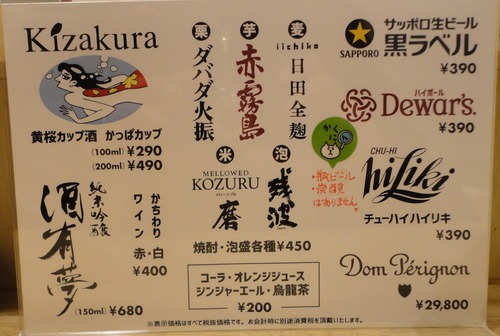 Kizakura
黄桜カップ酒 かっぱカップ
(100ml) ¥290
(200ml) ¥490
純米吟醸
酒有夢
(150ml) ¥680
かちわり
ワイン 赤・白
¥400
栗
ダバダ火振
芋
赤霧島
麦
iichiko
日田全麹
米
MELLOWED
KOZURU
磨
泡
残波
焼酎・泡盛各種¥450
コーラ・オレンジジュース
ジンジャーエール・烏龍茶
¥200
SAPPORO
サッポロ生ビール
黒ラベル
¥390
ハイボール
Dewar's.
¥390
・瓶ビール
はありません。
CHU-HI
hiLiki
チューハイハイリキ
¥390
Dom Pérignon
¥29,800
※表示価格はすべて税抜価格です。お会計時に別途消費税を頂戴いたします。